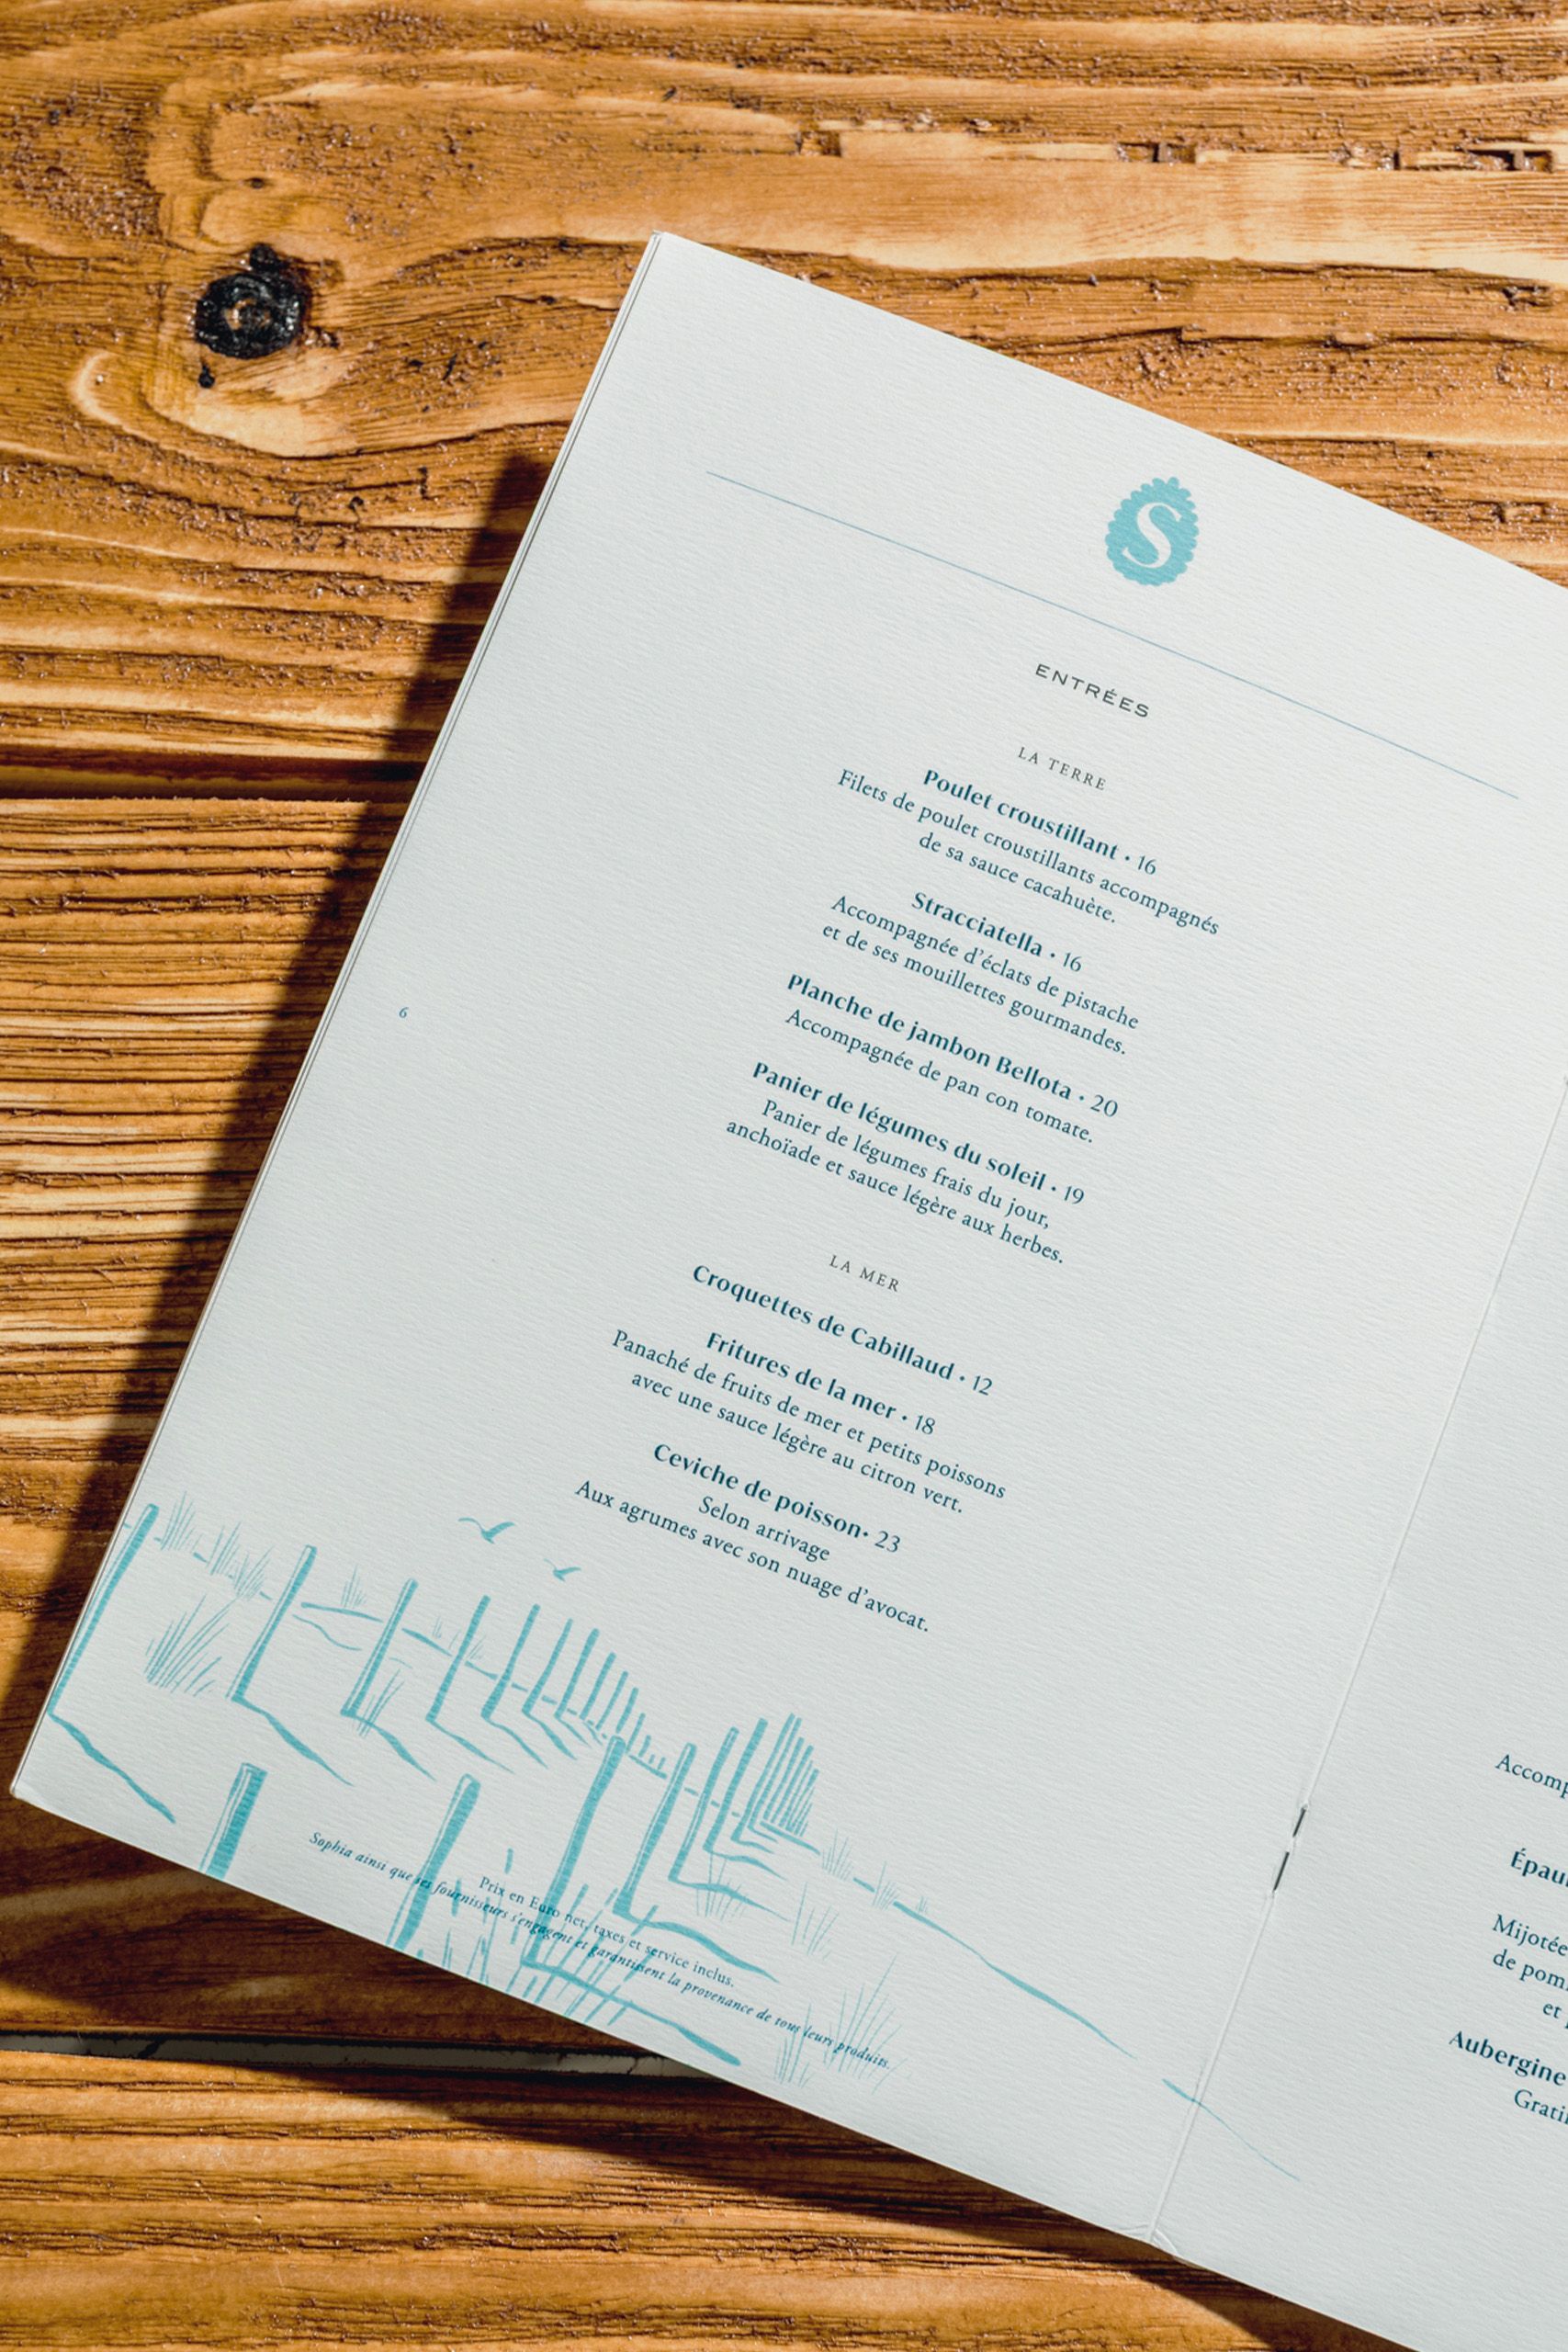 S
ENTRÉES
LA TERRE
Poulet croustillant • 16
Filets de poulet croustillants accompagnés
de sa sauce cacahuète.
Stracciatella • 16
Accompagnée d'éclats de pistache
et de ses mouillettes gourmandes.
Planche de jambon Bellota • 20
Accompagnée de pan con tomate.
Panier de légumes du soleil • 19
Panier de légumes frais du jour,
anchoïade et sauce légère aux herbes.
LA MER
Croquettes de Cabillaud • 12
Fritures de la mer • 18
Panaché de fruits de mer et petits poissons
avec une sauce légère au citron vert.
Ceviche de poisson• 23
Selon arrivage
Aux agrumes avec son nuage d'avocat.
6
Prix en Euro net, taxes et service inclus.
Sophia ainsi que ses fournisseurs s'engagent et garantissent la provenance de tous leurs produits.
Accomp
Épau
Mijotée
de pom
et
Aubergine
Grati